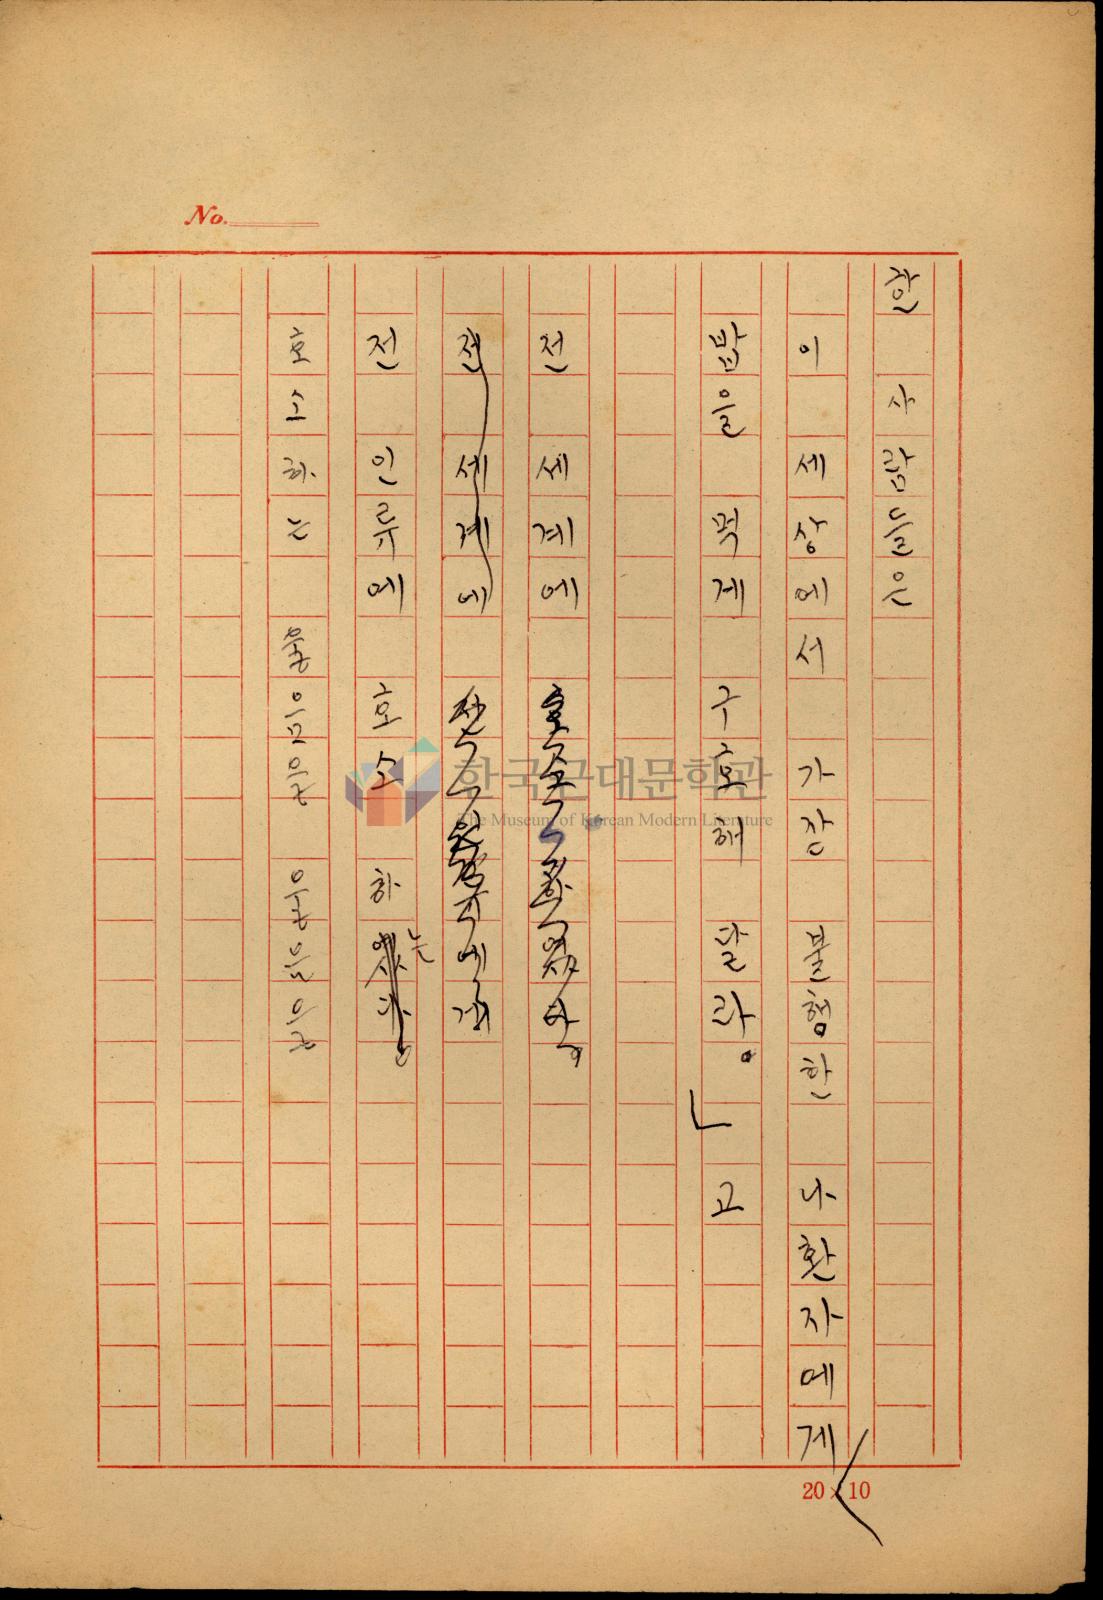 No.
한 사람들은
이 세상에서 가장 불행한 나환자에게
밥을 먹게 구호해 달라。」고
전 세계에
전 세계에
전 인류에 호소 하는
호소하는
한국근대문학관
The Museum of Korean Modern Literature
20×10